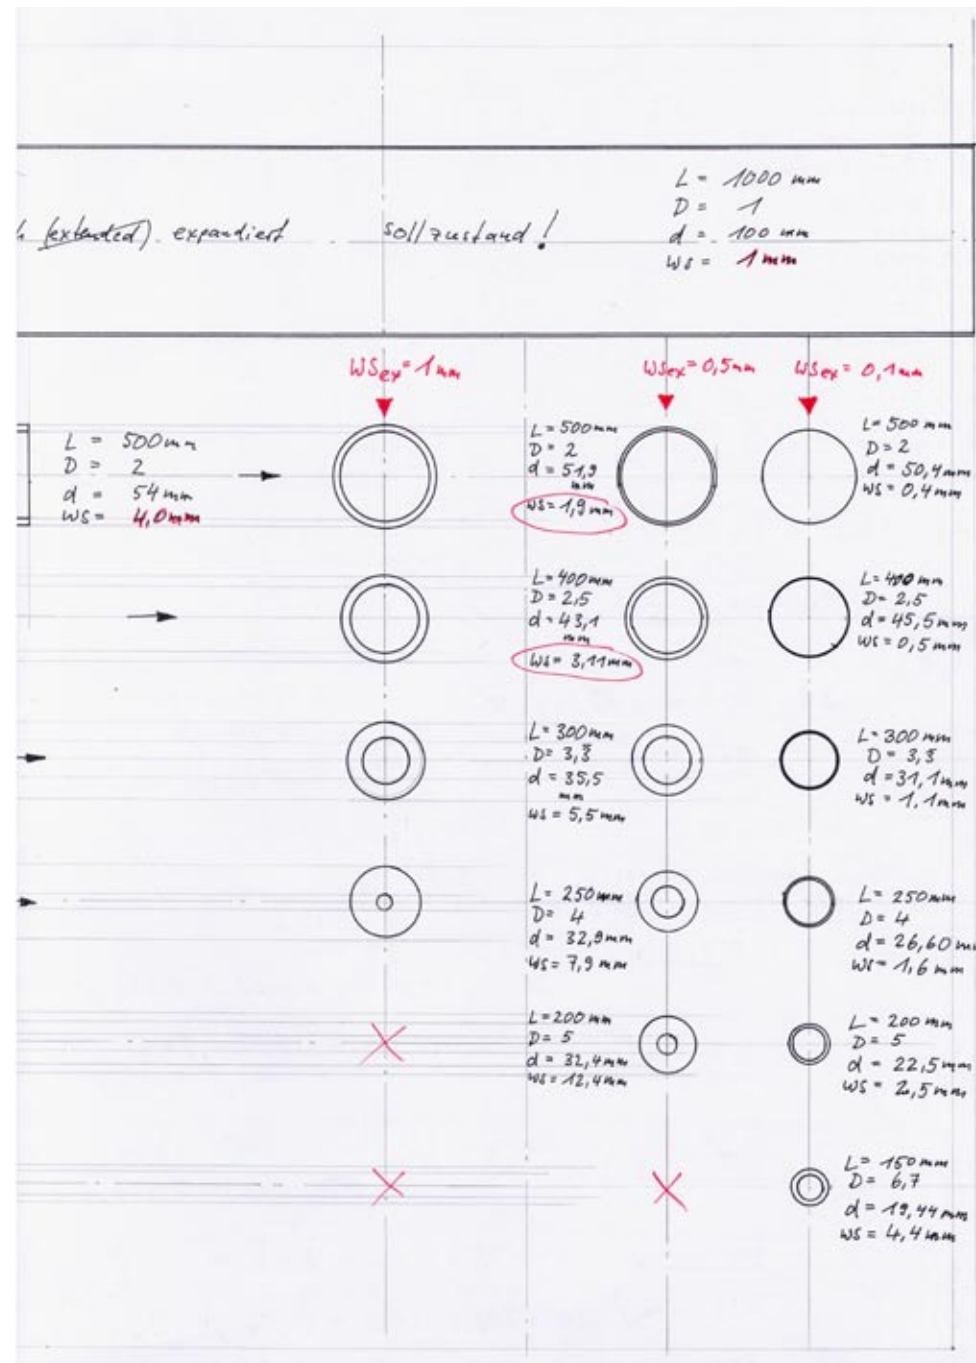 L = 1000 mm
D = 1
d = 100 mm
ws = 1 mm
(extended) expandiert sollzustand!
WSex = 1 mm
WSex = 0,5 mm
WSex = 0,1 mm
L = 500 mm
D = 2
d = 54 mm
WS = 4,0 mm
L = 500 mm
D = 2
d = 51,9
mm
WS = 1,9 mm
L = 500 mm
D = 2
d = 50,4 mm
WS = 0,4 mm
L = 400 mm
D = 2,5
d = 43,1
mm
WS = 3,11 mm
L = 400 mm
D = 2,5
d = 45,5 mm
WS = 0,5 mm
L = 300 mm
D = 3,3
d = 35,5
mm
WS = 5,5 mm
L = 300 mm
D = 3,3
d = 31,1 mm
WS = 1,1 mm
L = 250 mm
D = 4
d = 32,9 mm
WS = 7,9 mm
L = 250 mm
D = 4
d = 26,60 mm
WS = 1,6 mm
L = 200 mm
D = 5
d = 32,4 mm
WS = 12,4 mm
L = 200 mm
D = 5
d = 22,5 mm
WS = 2,5 mm
L = 150 mm
D = 6,7
d = 19,44 mm
WS = 4,4 mm